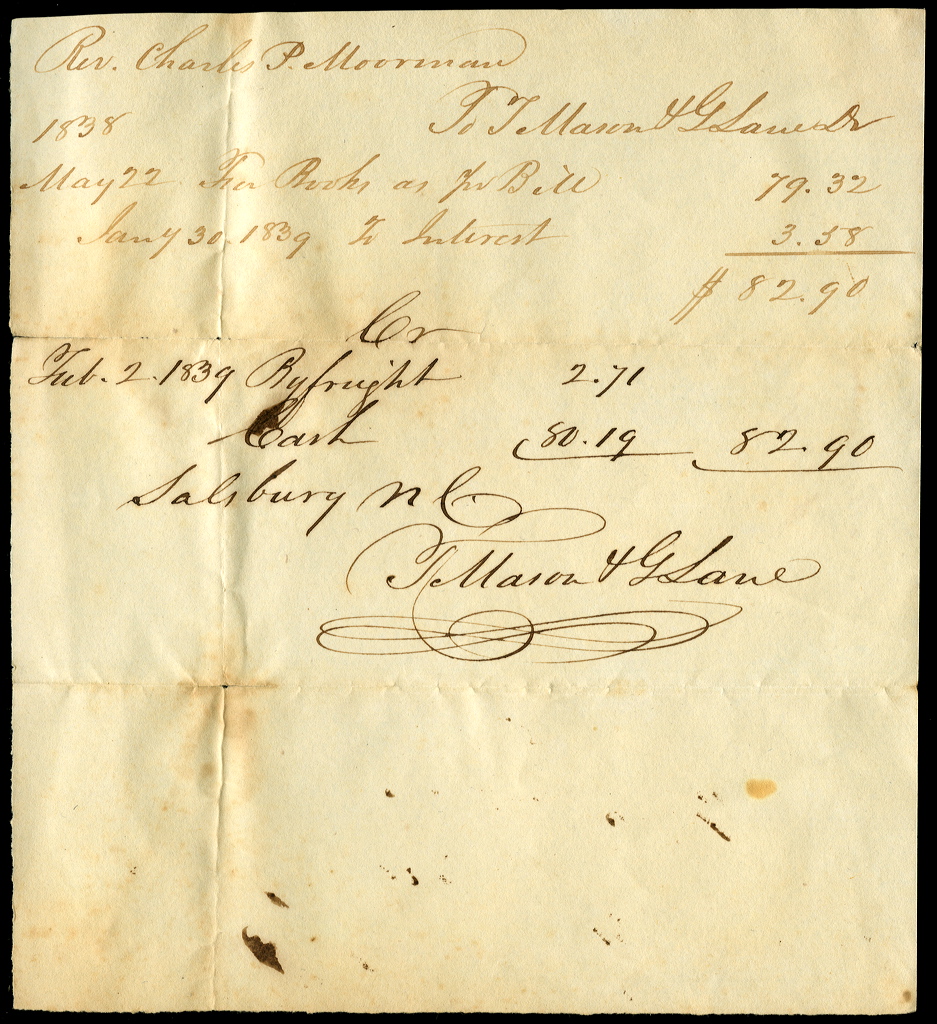 Rev. Charles P. Moorman
To T Mason & G Lane Dr
1838
May 22 For Books as pr Bill 79.32
Jany 30. 1839 To Interest 3.58
$ 82.90
Cr
Feb. 2. 1839 By freight 2.71
Cash 80.19 82.90
Salsbury N C.
T Mason & G Lane